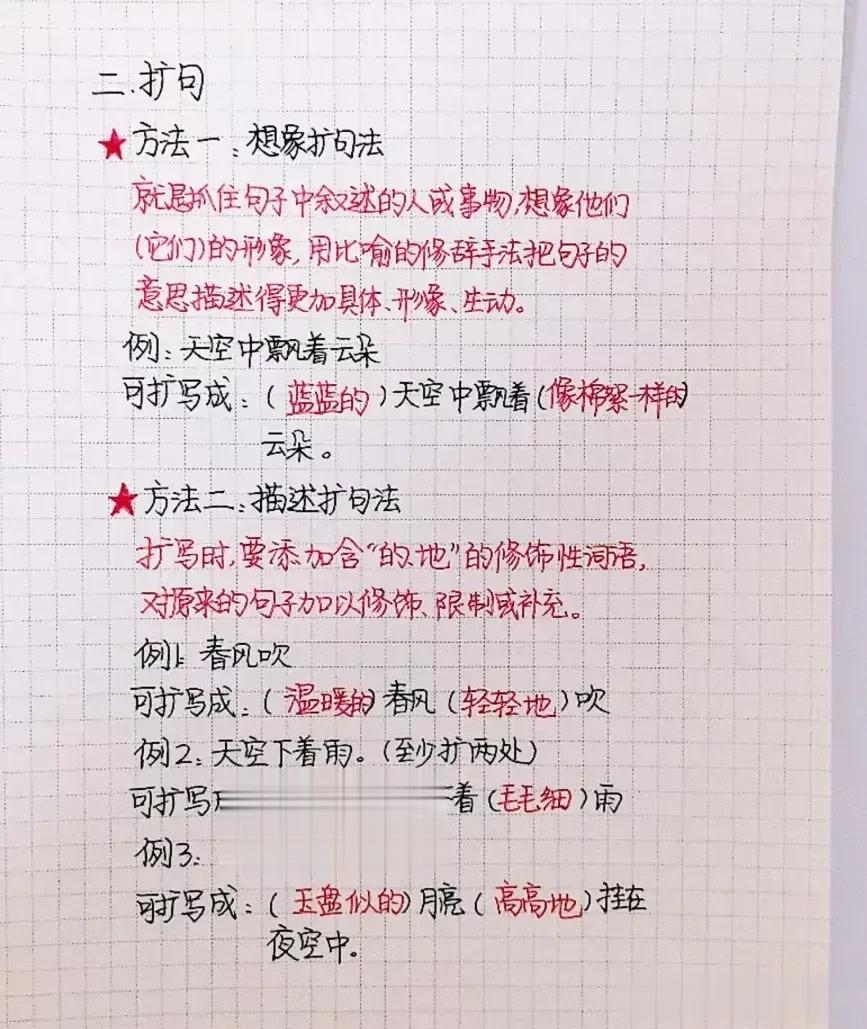 二.扩句
★方法一:想象扩句法
就是抓住句子中叙述的人或事物,想象他们
(它们)的形象,用比喻的修辞手法把句子的
意思描述得更加具体、形象、生动。
例:天空中飘着云朵
可扩写成:(蓝蓝的)天空中飘着(像棉絮一样的)
云朵。
★方法二:描述扩句法
扩写时,要添加含“的、地”的修饰性词语,
对原来的句子加以修饰、限制或补充。
例1:春风吹
可扩写成:(温暖的)春风(轻轻地)吹
例2:天空下着雨。(至少扩两处)
可扩写 着(毛毛细)雨
例3:
可扩写成:(玉盘似的)月亮(高高地)挂在
夜空中。